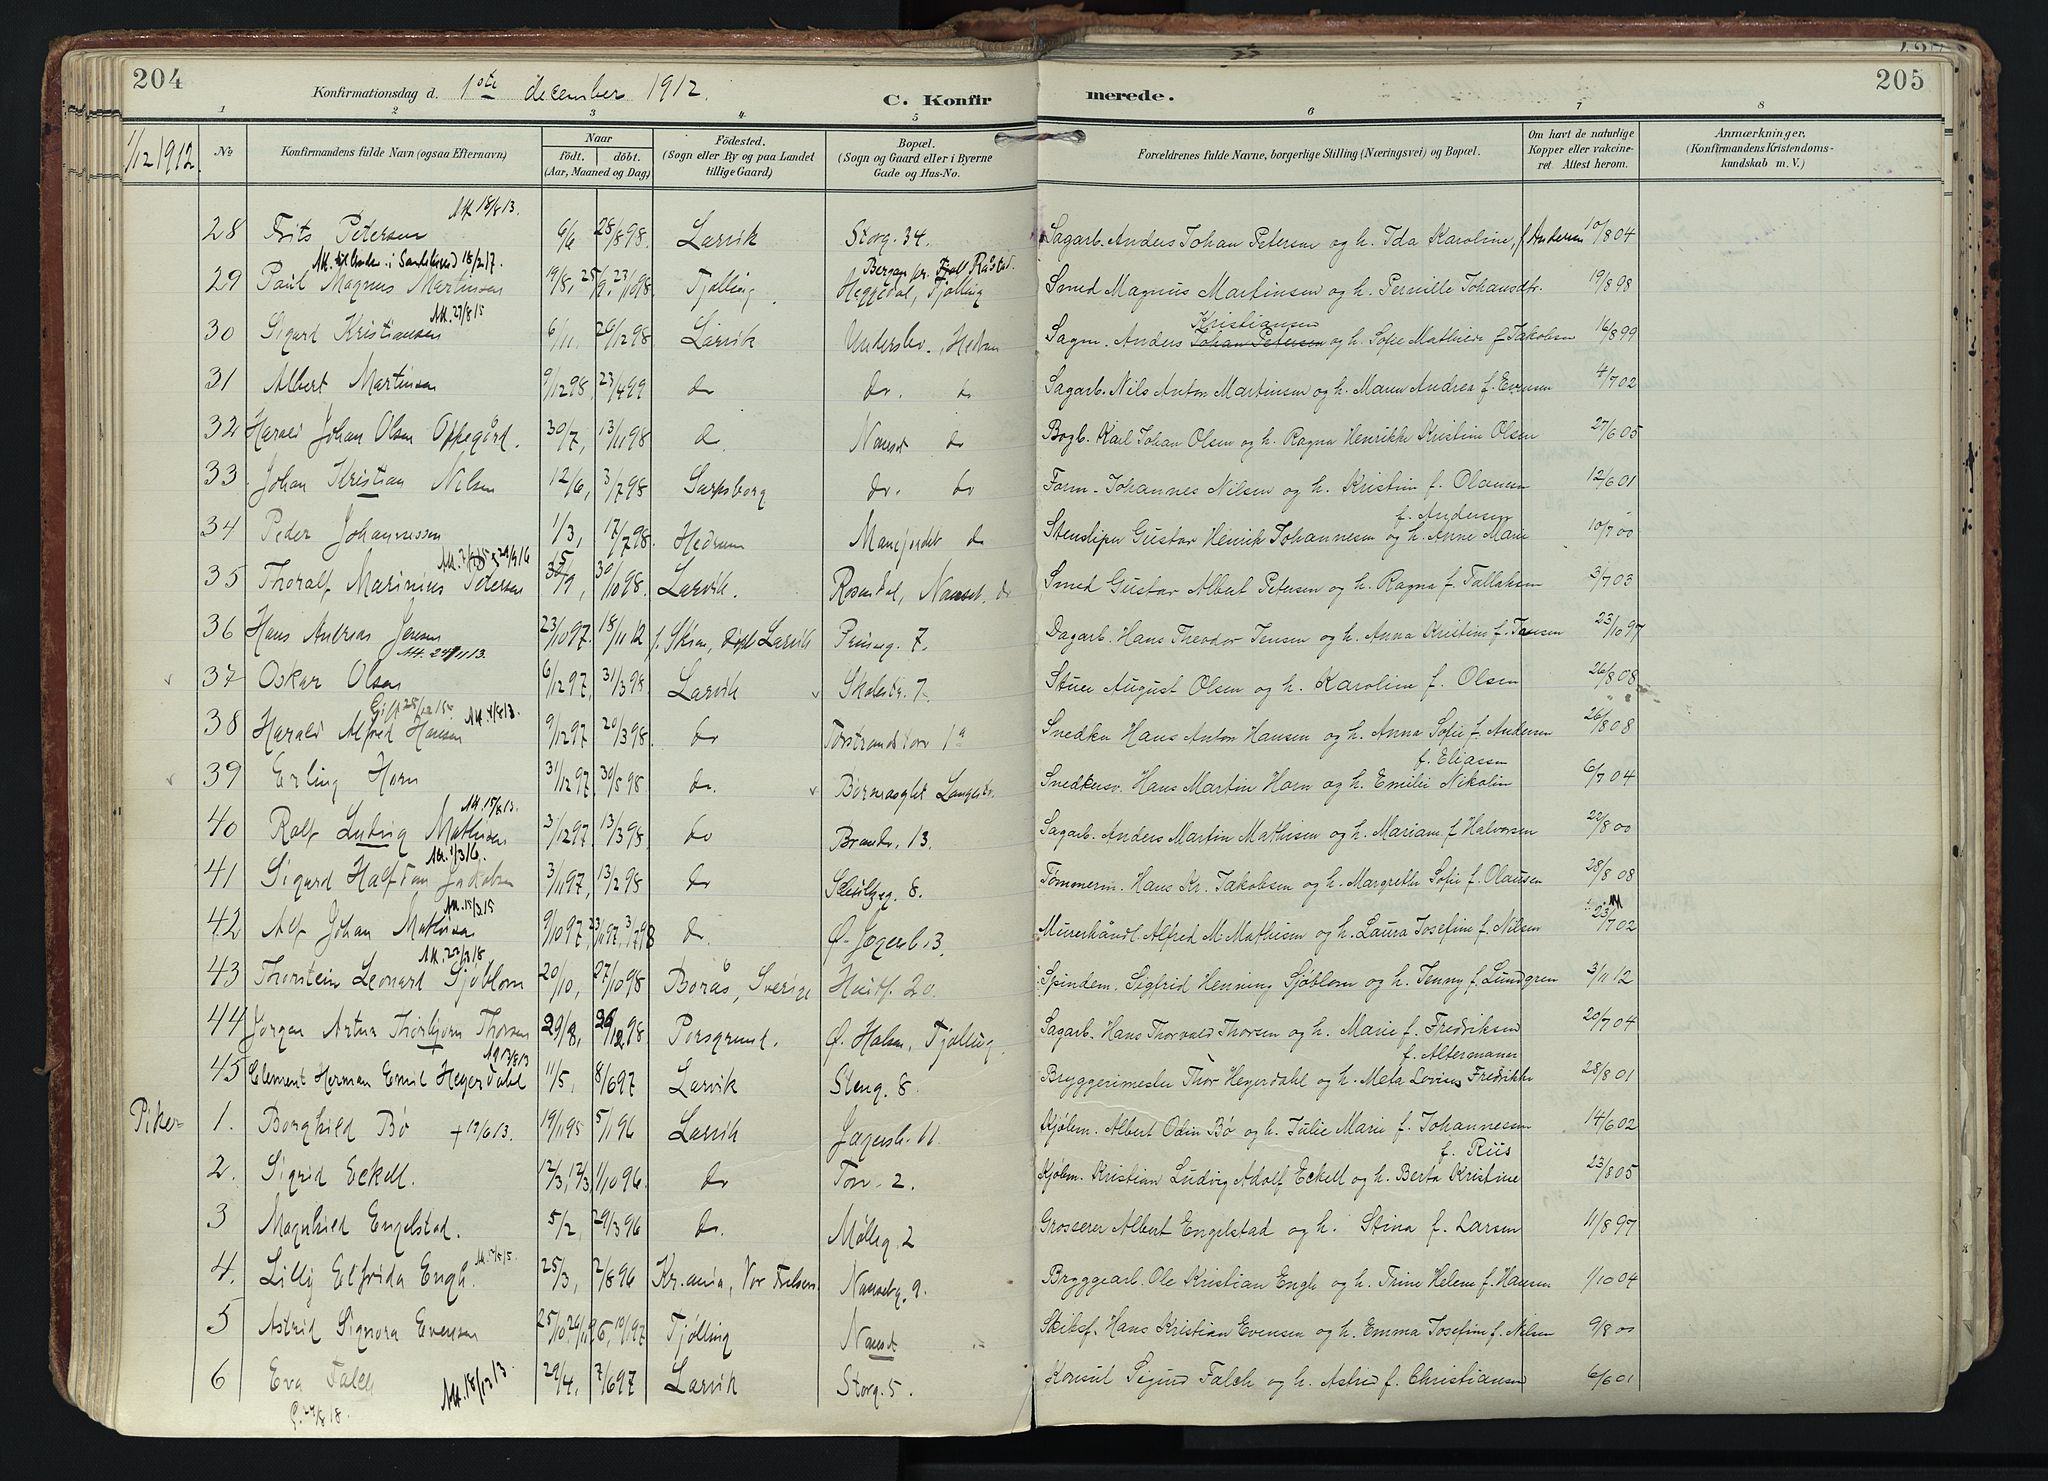 204
Konfirmationsdag d. 1ste december 1912.
C. Konfirmerede.
205
1 2 3 4 5 6 7 8
1/12 1912.
No
Konfirmandens fulde Navn (ogsaa Efternavn)
Naar
født. døbt.
(Aar, Maaned og Dag)
Fødested.
(Sogn eller By og paa Landet
tillige Gaard)
Bopæl.
(Sogn og Gaard eller i Byerne
Gade og Hus-No.
Forældrenes fulde Navne, borgerlige Stilling (Næringsvei) og Bopæl.
Om havt de naturlige
Kopper eller vakcine-
ret Attest herom.
Anmærkninger.
(Konfirmandens Kristendoms-
kundskab m. V.)
Att. 18/8 13.
28 Frits Petersen 6/6 28/8 98. Larvik Storg. 34. Sagarb. Anders Johan Petersen og h. Ida Karoline, f Andersen 10/8 04
i Sandehered 18/2 17.
29 Paul Magnus Martinsen 19/8, 23/10 98. Tjølling Heggedal, Tjølling Smed Magnus Martinsen og h. Pernille Johansdtr. 19/8 98
Att. 27/8 15
30 Sigurd Kristiansen 6/11. 26/12 98 Larvik Undersbo., Hedrum Sagm. Anders Johan Petersen Kristiansen og h. Sofie Mathilde f Jakobsen 16/8 99
31 Albert Martinsen 9/12 98, 23/4 99 do do. do Sagarb. Nils Anton Martinsen og h. Maren Andrea f. Evensen 4/7 02
32 Harald Johan Olsen Oppegård. 30/7, 13/11 98 do Nanset do Bogb. Karl Johan Olsen og h. Ragna Henrikke Kristine Olsen 27/6 05
33. Johan Kristian Nilsen 12/6, 3/7 98 Sarpsborg do. do Form. Johannes Nilsen og h. Kristine f. Olausen 12/6 01
f. Andersen
34 Peder Johannessen 1/3, 17/7 98. Hedrum Manejordet do Stensliper Gustav Henrik Johannesen og h. Anne Marie 10/7 00
35 Thoralf Marinius Petersen 30/10 98. Larvik. Rosendal, Nanset. do Smed Gustav Albert Petersen og h. Ragna f. Tallaksen 3/7 03
36 Hans Andreas Jensen 23/10 97. 18/11 12 f. Skien, Larvik Prinseg. 7. Dagarb. Hans Theodor Jensen og h. Anna Kristine f. Jansen 23/10 97
37 Oskar Olsen 6/12 97, 31/3 98. Larvik Skolestr. 7 Stuer August Olsen og h. Karoline f. Olsen 26/8 08
Gift 25/12 15. Att. 4/8 13.
38 Harald Alfred Hansen 9/12 97 20/3 98. do Torstrandstorv 1a Snedker Hans Anton Hansen og h. Anna Sofie f. Andersen 26/8 08
f. Eliassen
39 Erling Horn 31/12 97. 30/5 98. do. Børneasylet Langestr. Snedkersv. Hans Martin Horn og h. Emilie Nikoline 6/7 04
Att. 15/8 13.
40 Rolf Ludvig Mathisen 3/12 97 13/3 98. do Brandv. 13. Sagarb. Anders Martin Mathisen og h. Mariane f Halvorsen 22/8 00
Att. 1/3 16.
41 Sigurd Halfdan Jakobsen 3/11 97, 13/2 98 do Schultzeg. 8. Tømmerm. Hans Kr. Jakobsen og h. Margrethe Sofie f. Olausen 28/8 08
Att. 15/3 15
42 Alf Johan Mathisen 9/10 97, 3/7 98 do. Ø. Jegersb. 13. Murerhåndl. Alfred M Mathisen og h. Laura Josefine f. Nilsen 23/7 02
43 Thorstein Leonard Sjøblom 20/10, 27/10 98 Borås, Sverige Huitf. 20. Spindem. Sigfrid Henning Sjøblom og h. Jenny f. Lundgren 3/11 12
44 Jørgen Artur Thorbjørn Thorsen 29/8, 26/12 98 Porsgrund. Ø. Halsen, Tjølling. Sagarb. Hans Thorvald Thorsen og h. Marie f. Fredriksen 20/7 04
Att 13/8 13 f. Altermann
45 Clement Herman Emil Heyerdahl 11/5, 8/6 97 Larvik Steng. 8. Bryggerimester Thor Heyerdahl og h. Meta Lovise Fredrikke 28/8 01
Piker
1. Borghild Bø + 19/6 13. 19/11 95 5/1 96 Larvik Jegersb. 11. Kjølem. Albert Odin Bø og h. Julie Marie f. Johannesen 14/6 02
f. Riis
2. Sigrid Eckell. 12/3, 11/10 96. do Torv. 2. Kjølm. Kristian Ludvig Adolf Eckell og h. Berta Kristine 23/8 05
3 Magnhild Engelstad. 5/2, 29/3 96 do. Mølleg. 2 Grosserer Albert Engelstad og h. Stina f. Larsen 11/8 97
4. Lilly Elfrida Engh. 25/3, 2/8 96 Kr.ania, Vor Frelsers. Nansetg. 9. Bryggearb. Ole Kristian Engh og h. Trine Helene f. Hansen 1/10 04
5 Astrid Signora Evensen 25/10 10/1 97 Tjølling Nanset Skibsf. Hans Kristian Evensen og h. Emma Josefine f. Nilsen 9/8 00
6 Eva Falch Att. 18/12 13 29/4. 7/6 97 Larvik Storg. 5. Konsul Sigurd Falch og h. Astrid f. Christiansen 6/6 01